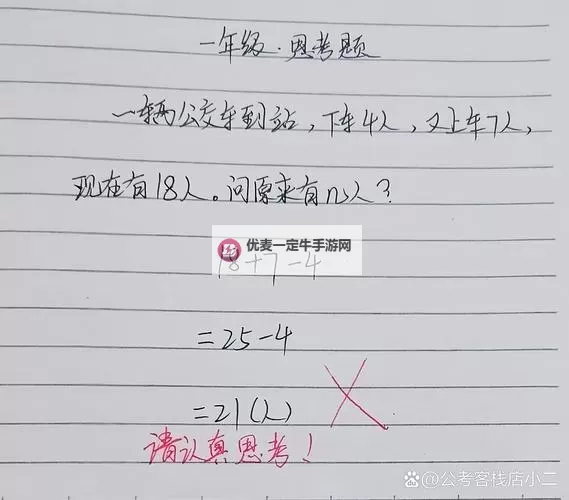 一年级·思考题
一辆公交车到站，下车4人，又上车7人，
现在有18人。问原来有几人？
优麦一定牛手游网
18+7-4
=25-4
=21(人)
请认真思考！
@公考客栈店小二